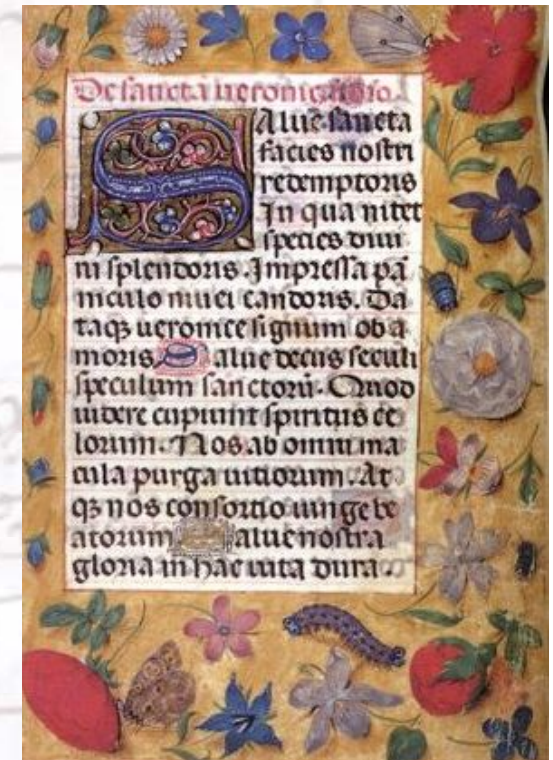 De sancta veronica oratio
Salue sancta
facies nostri
redemptoris
In qua nitet
species diui
ni splendoris. Impressa pā
niculo niuei candoris. Da
taqꝫ ueronice signum ob a
moris Salue decus seculi
speculum sanctorū. Quod
uidere cupiunt spiritus ce
lorum. Nos ab omni ma
cula purga uitiorum. At
qꝫ nos consortio iunge be
atorum Salue nostra
gloria in hac uita dura.